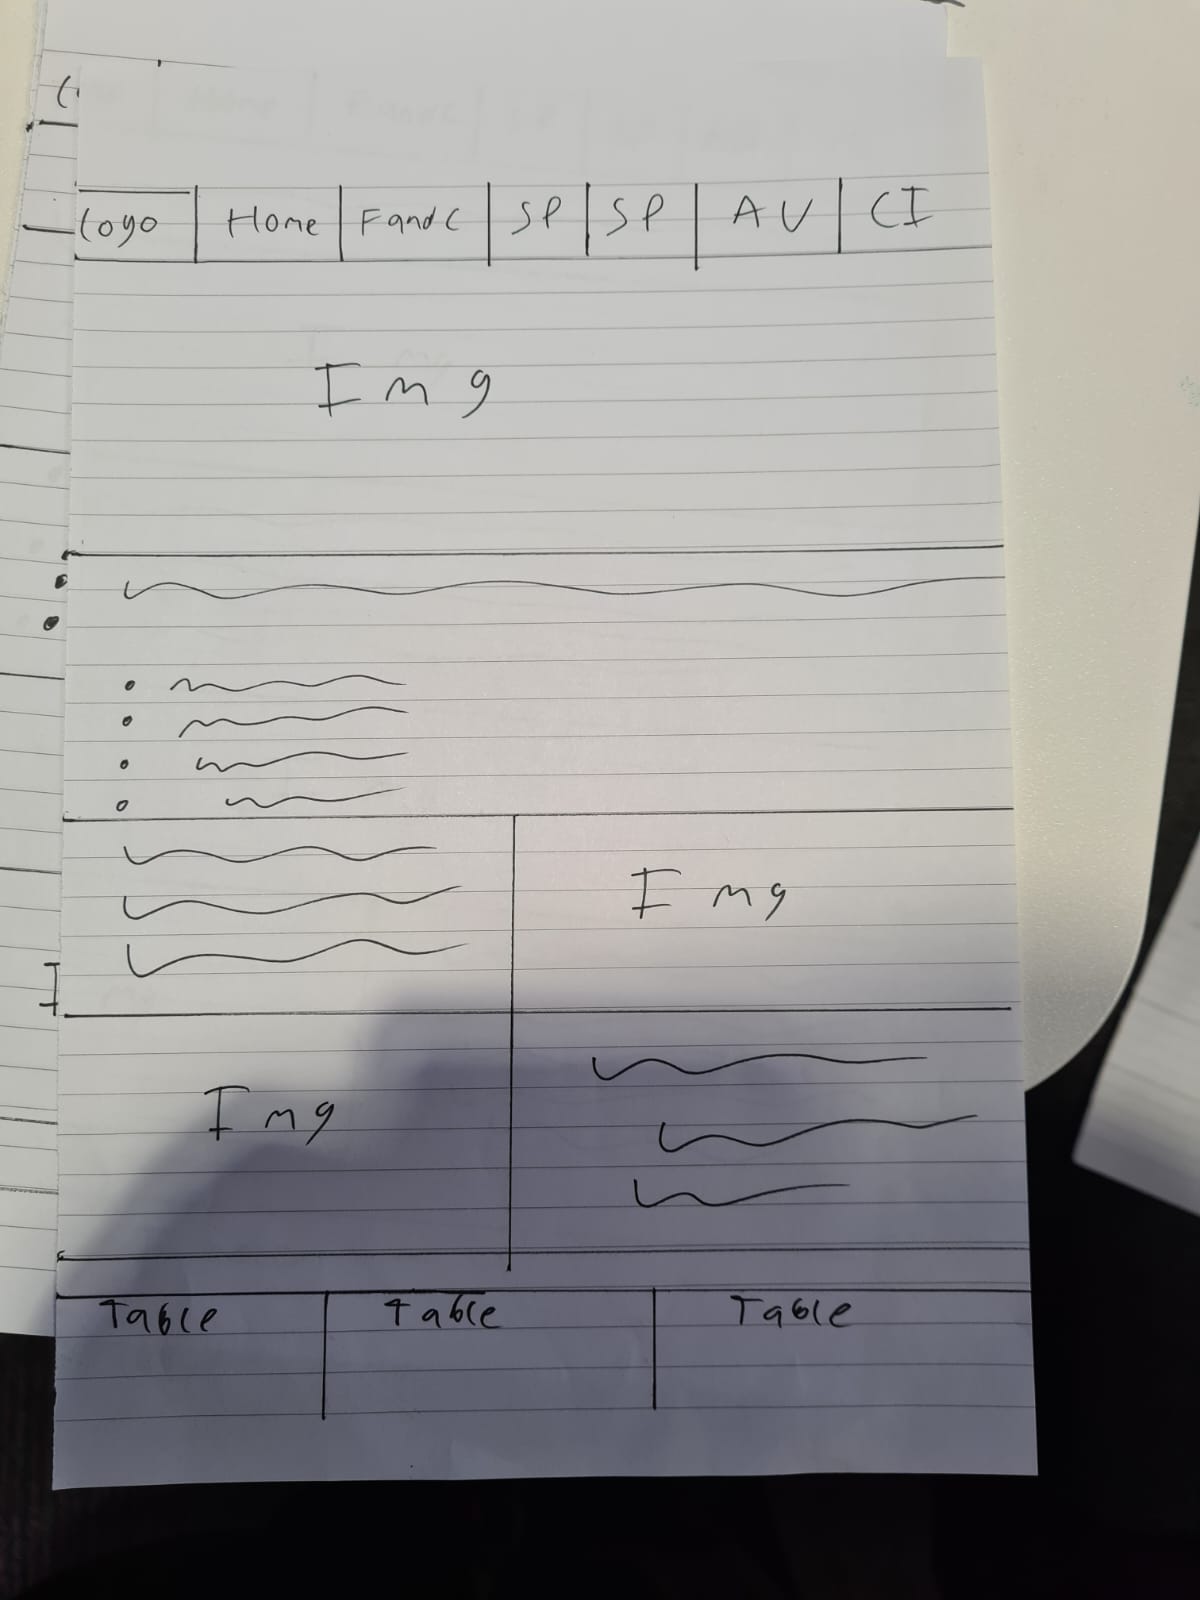 Logo Home FandC SP SP AU CI
Img
Img
Img
Table Table Table